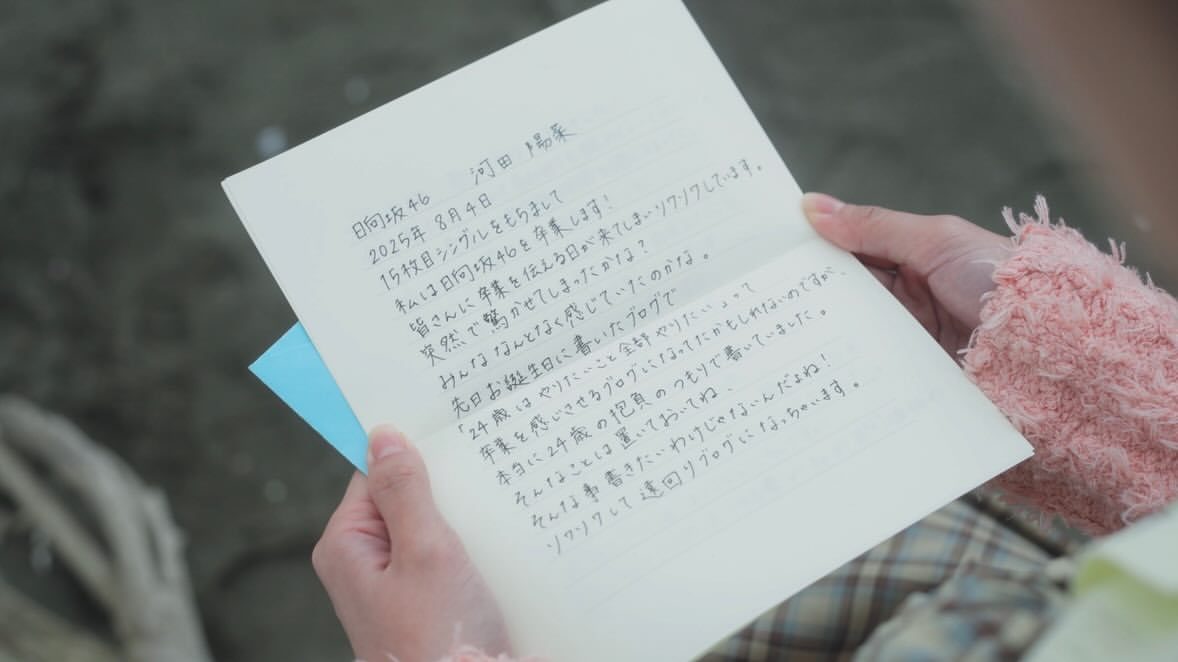 日向坂46 河田 陽菜
2025年 8月4日
15枚目シングルをもちまして
私は日向坂46を卒業します!
皆さんに卒業を伝える日が来てしまいソワソワしています。
突然で驚かせてしまったかな?
みんななんとなく感じていたのかな。
先日お誕生日に書いたブログで
「24歳はやりたいこと全部やりたい」って
卒業を感じさせるブログになってたかもしれないのですが、
本当に24歳の抱負のつもりで書いていました。
そんなことは置いておいてね、
そんな事書きたいわけじゃないんだよね!
ソワソワして遠回りブログになっちゃいます。